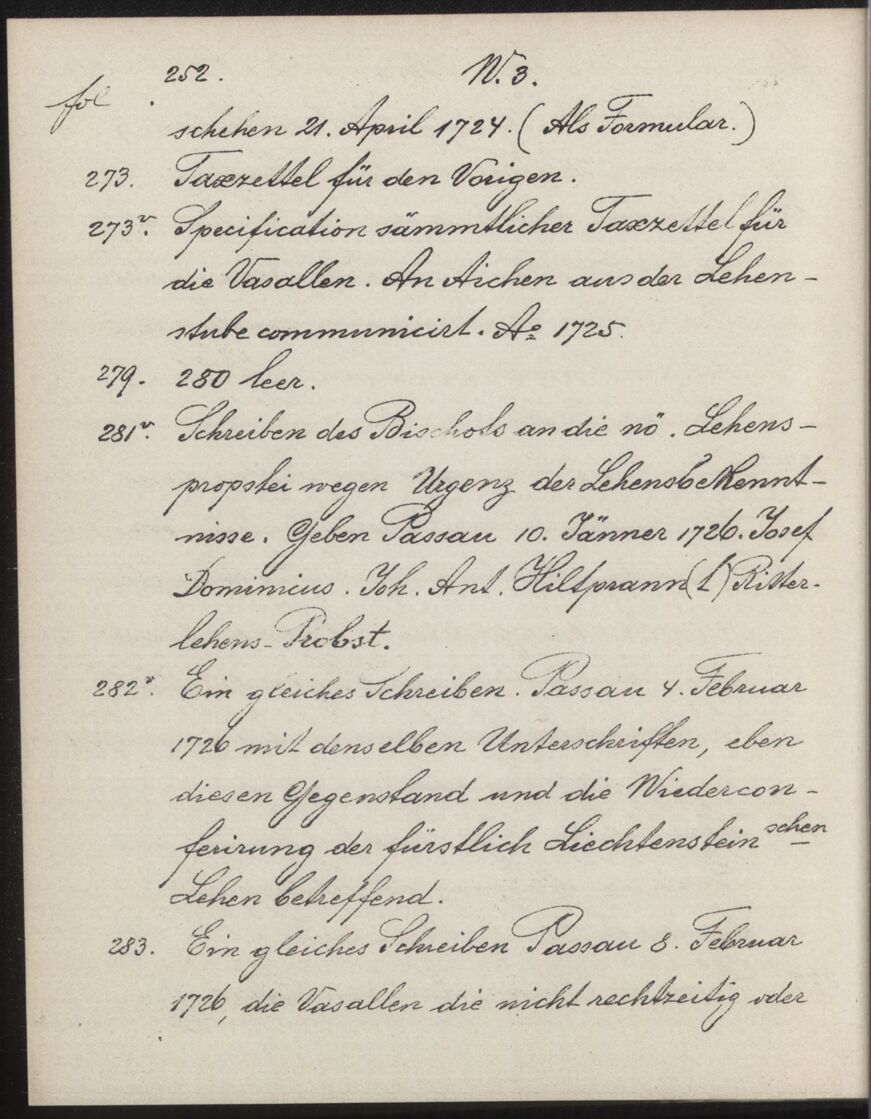 252. N. 3.
fol.
schehen 21. April 1724. (Als Formular.)
273. Taxzettel für den Vorigen.
273v. Specification sämmtlicher Taxzettel für
die Vasallen. An Aichen aus der Lehen-
stube communicirt. Ao 1725.
279. 280 leer.
281v. Schreiben des Bischofs an die nö. Lehens-
propstei wegen Urgenz der Lehensbekennt-
nisse. Geben Passau 10. Jänner 1726. Josef
Dominicus. Joh. Ant. Hiltprann(t) Ritter-
lehens-Probst.
282v. Ein gleiches Schreiben. Passau 4. Februar
1726 mit denselben Unterschriften, eben
diesen Gegenstand und die Wiedercon-
ferirung der fürstlich Liechtensteinschen
Lehen betreffend.
283. Ein gleiches Schreiben Passau 8. Februar
1726, die Vasallen die nicht rechtzeitig oder